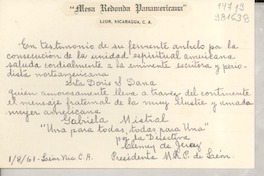 "Mesa Redonda Panamericana"
LEON, NICARAGUA, C. A.
14713
En testimonio de su ferviente anhelo por la
consecución de la unidad espiritual americana
saluda cordialmente a la eminente escritora y perio-
dista norteamericana
Srta Doris S Dana
quien amorosamente lleva a traves del continente
el mensaje fraternal de la muy ilustre y amada
mujer americana
Gabriela Mistral
"Una para todas, todas para Una"
por la Directiva
1/8/61-Leon Nic C.A.
Presidente M.R.P. de León.